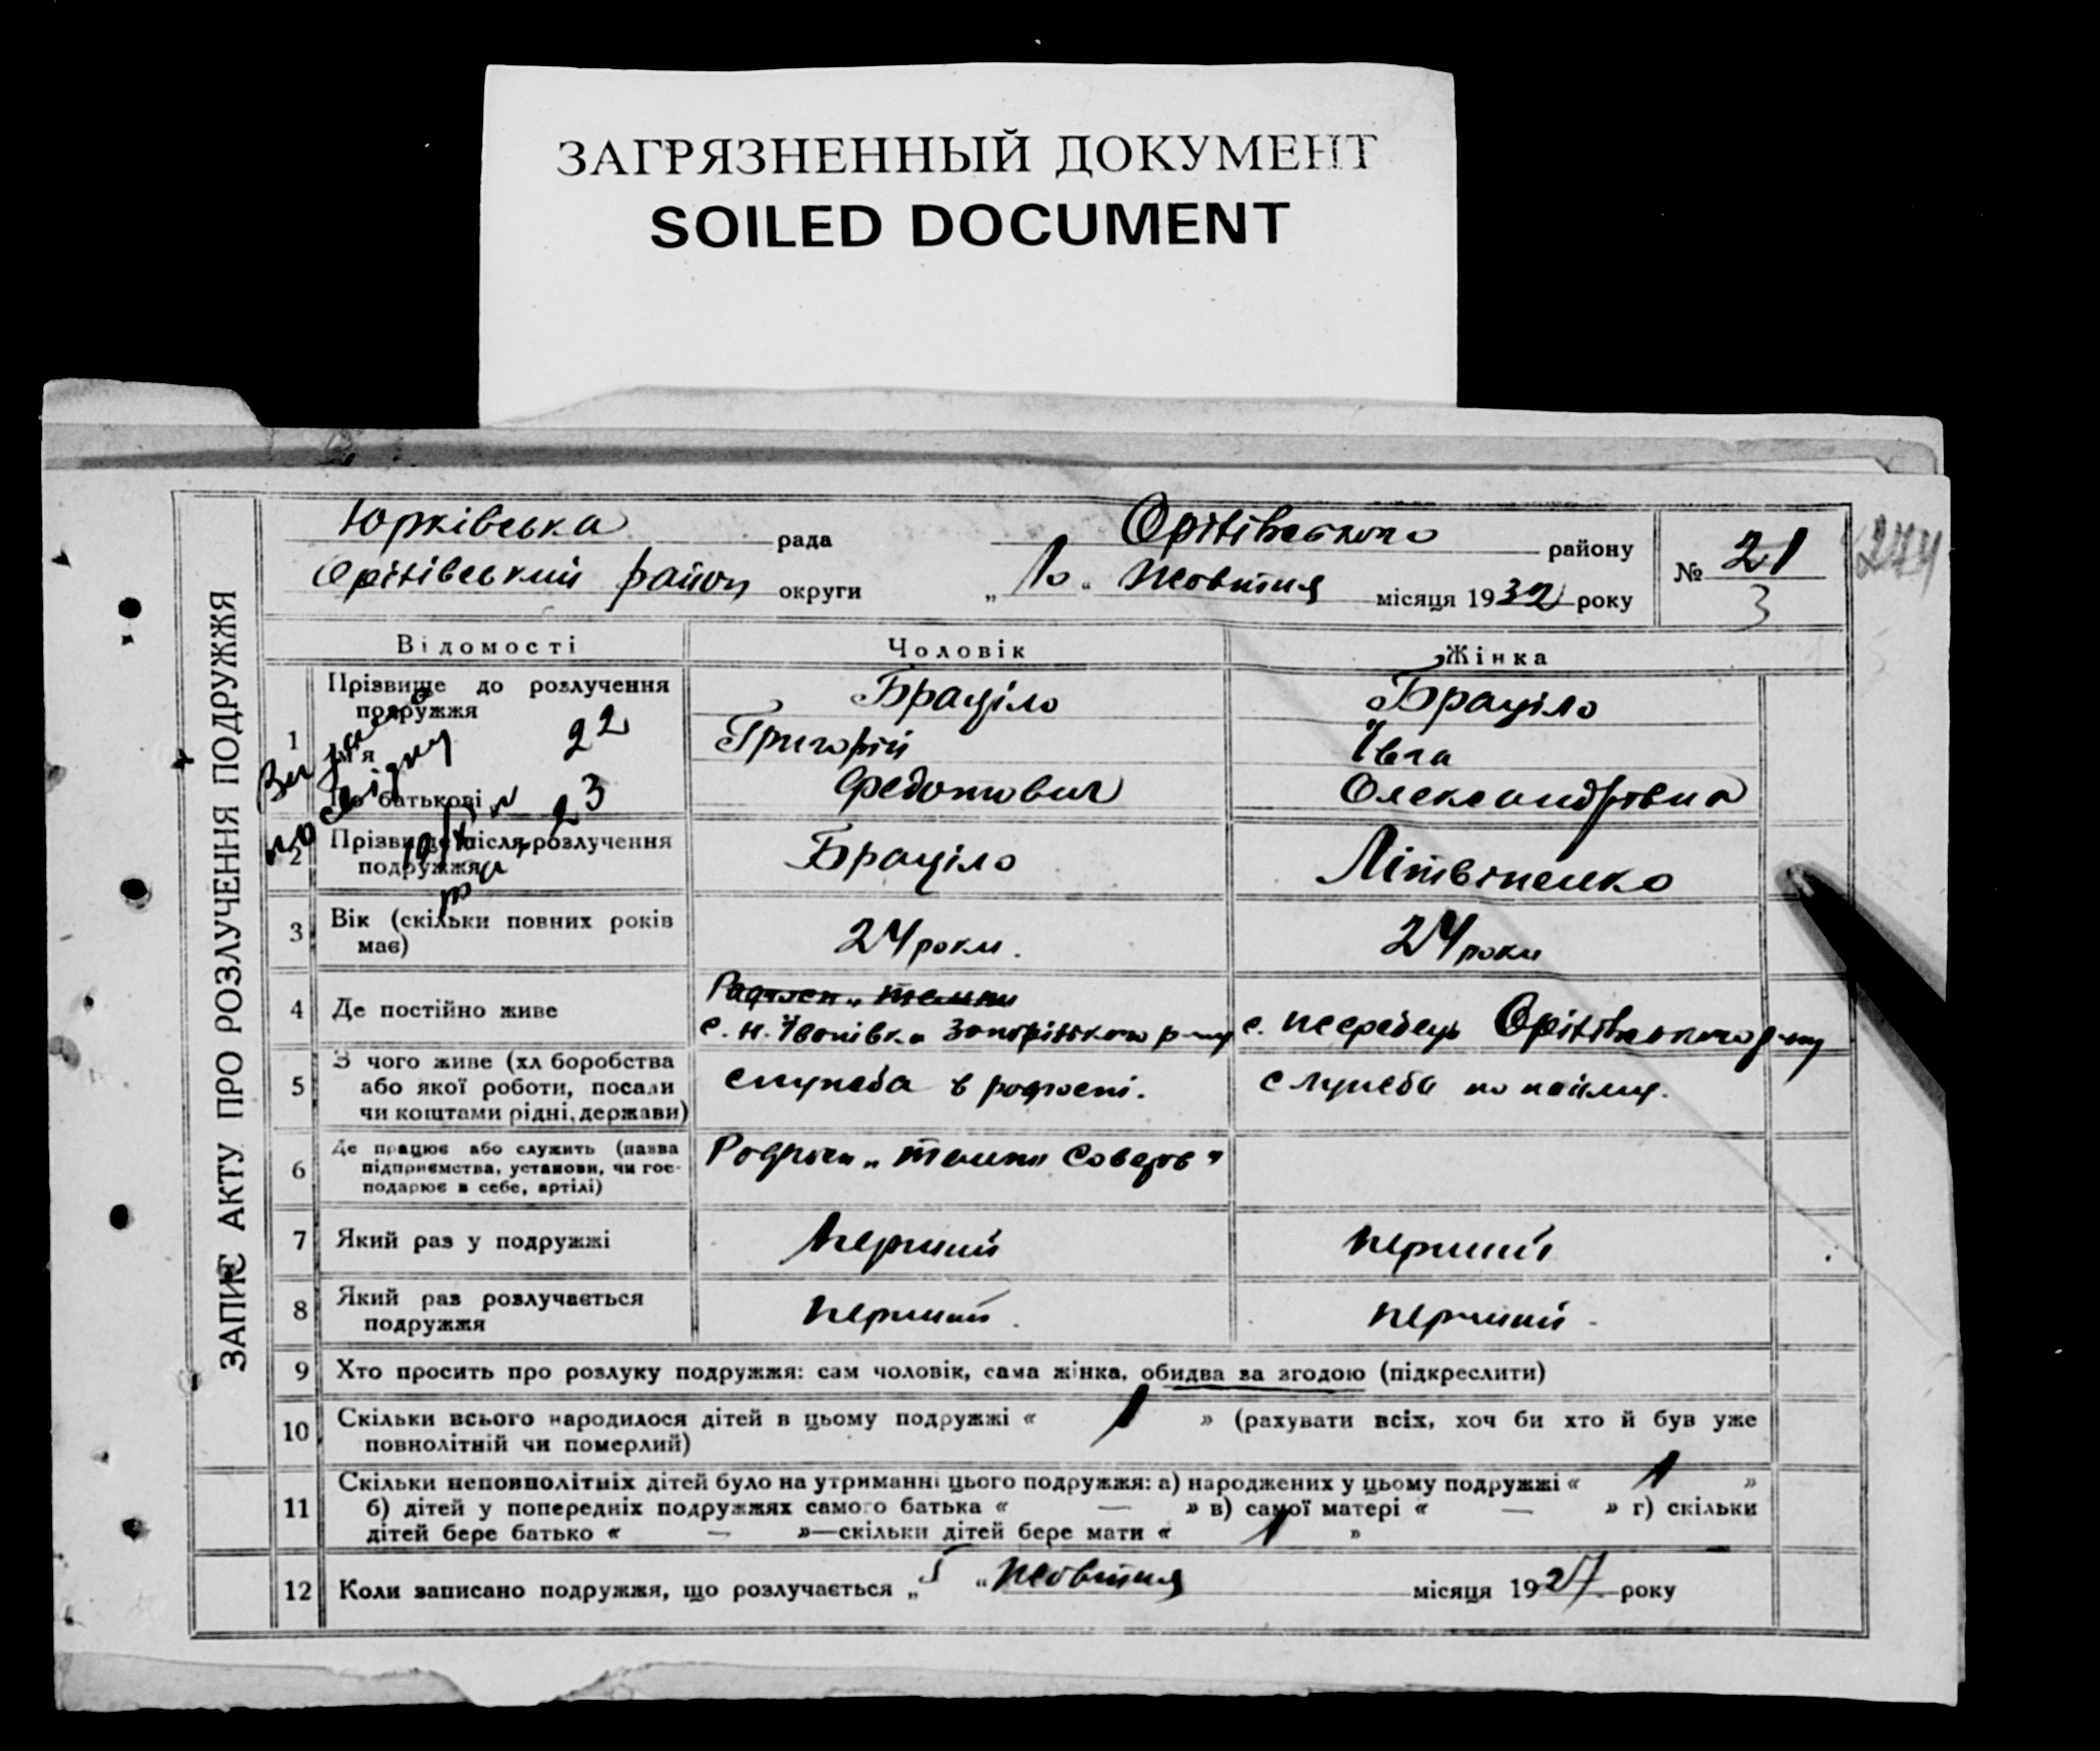 ЗАГРЯЗНЕННЫЙ ДОКУМЕНТ
SOILED DOCUMENT
ЗАПИС АКТУ ПРО РОЗЛУЧЕННЯ ПОДРУЖЖЯ
Юрківська рада Оріхівського району № 21
Оріхівський район округи „10" жовтня місяця 1932 року 3
274
Відомості Чоловік Жінка
1 Прізвище до розлучення подружжя Браціло Браціло
Ім'я 22 Григорій Ївга
По батькові 23 Федотович Олександровна
2 Прізвище після розлучення подружжя Браціло Літвіненко
3 Вік (скільки повних років має) 24 роки. 24 роки
4 Де постійно живе
с. Н. Їванівка Запоріжського р-ну с. Жеребець Оріхівського р-ну
5 З чого живе (хліборобства або якої роботи, посади чи коштами рідні, держави) служба в радгоспі. служба по найму.
6 Де працює або служить (назва підприємства, установи, чи господарює в себе, артілі) Радгосп „ Советов"
7 Який раз у подружжі перший перший
8 Який раз розлучається подружжя перший. перший.
9 Хто просить про розлуку подружжя: сам чоловік, сама жінка, обидва за згодою (підкреслити)
10 Скільки всього народилося дітей в цьому подружжі « 1 » (рахувати всіх, хоч би хто й був уже
повнолітній чи померлий)
11 Скільки неповнолітніх дітей було на утриманні цього подружжя: а) народжених у цьому подружжі « 1 »
б) дітей у попередніх подружжях самого батька « — » в) самої матері « — » г) скільки
дітей бере батько « — »—скільки дітей бере мати « 1 »
12 Коли записано подружжя, що розлучається „5" жовтня місяця 1927 року